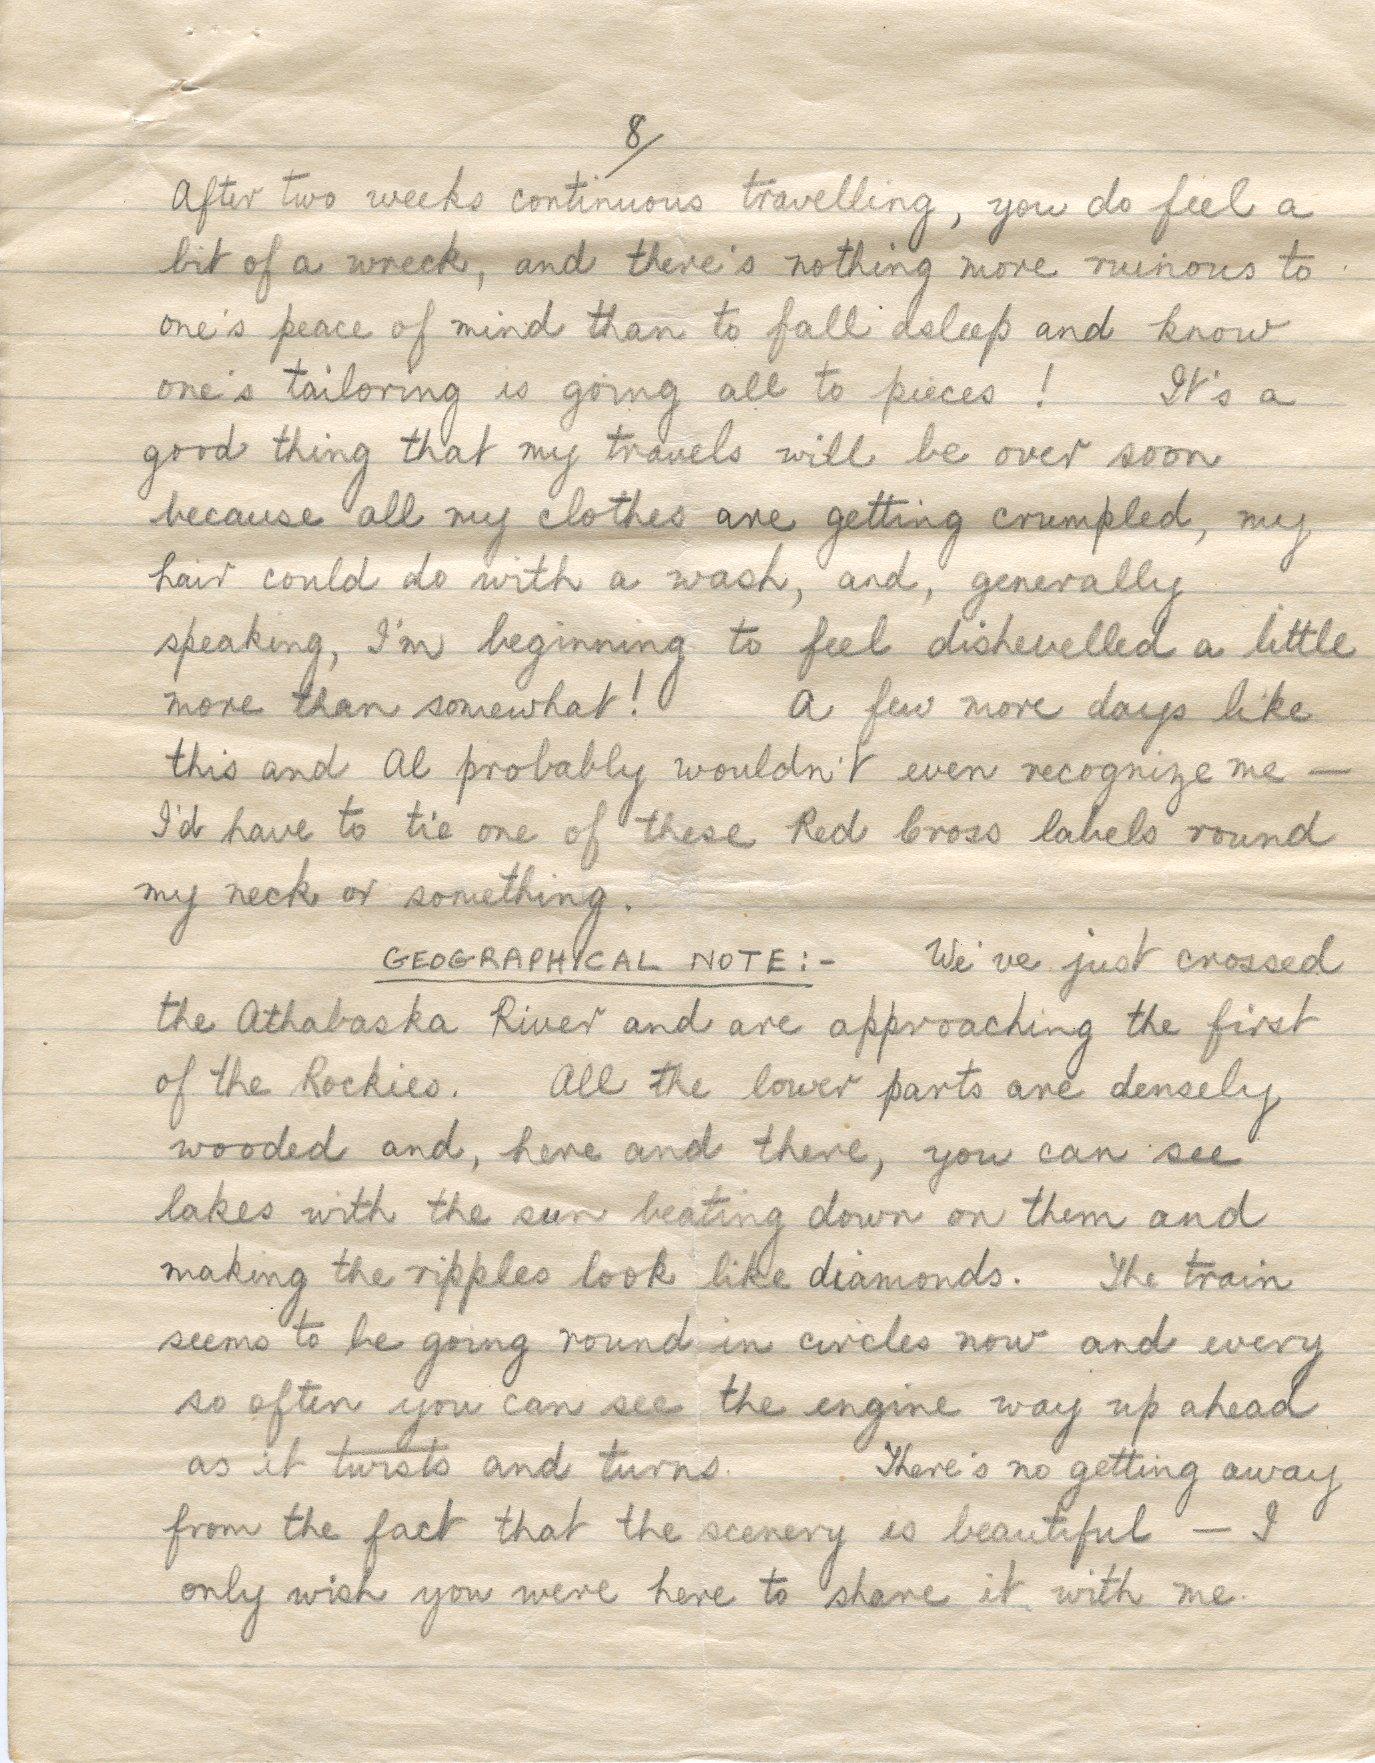 8/
After two weeks continuous travelling, you do feel a
bit of a wreck, and there's nothing more ruinous to
one's peace of mind than to fall asleep and know
one's tailoring is going all to pieces! It's a
good thing that my travels will be over soon
because all my clothes are getting crumpled, my
hair could do with a wash, and, generally
speaking, I'm beginning to feel dishevelled a little
more than somewhat! A few more days like
this and Al probably wouldn't even recognize me —
I'd have to tie one of these Red Cross labels round
my neck or something.
GEOGRAPHICAL NOTE:- We've just crossed
the Athabaska River and are approaching the first
of the Rockies. All the lower parts are densely
wooded and, here and there, you can see
lakes with the sun beating down on them and
making the ripples look like diamonds. The train
seems to be going round in circles now and every
so often you can see the engine way up ahead
as it twists and turns. There's no getting away
from the fact that the scenery is beautiful — I
only wish you were here to share it with me.